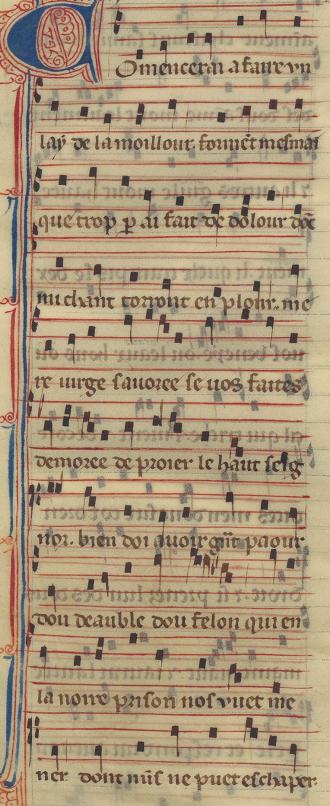 Comencerai a faire un
lay de la moillour. formet mesmai
que trop p ai fait de dolour dōt
mi chant torront en plour. me
re virge savoree se vos faites
demoree de proier le haut seig
nor. bien doi avoir gn̄t paour
dou deauble dou felon qui en
la noire prison nos vuet me
ner dont nus ne puet eschaper.